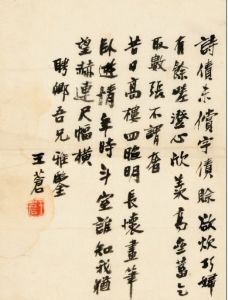 詩債未償字債賒欲炊
有餘嗟澄心欣羨高
取數張不謂奢
昔日高樓四臨明長懷畫華
臥遊情年時斗室誰知我猶
望赫連尺幅橫
聘卿吾兄雅鑒
王蒼